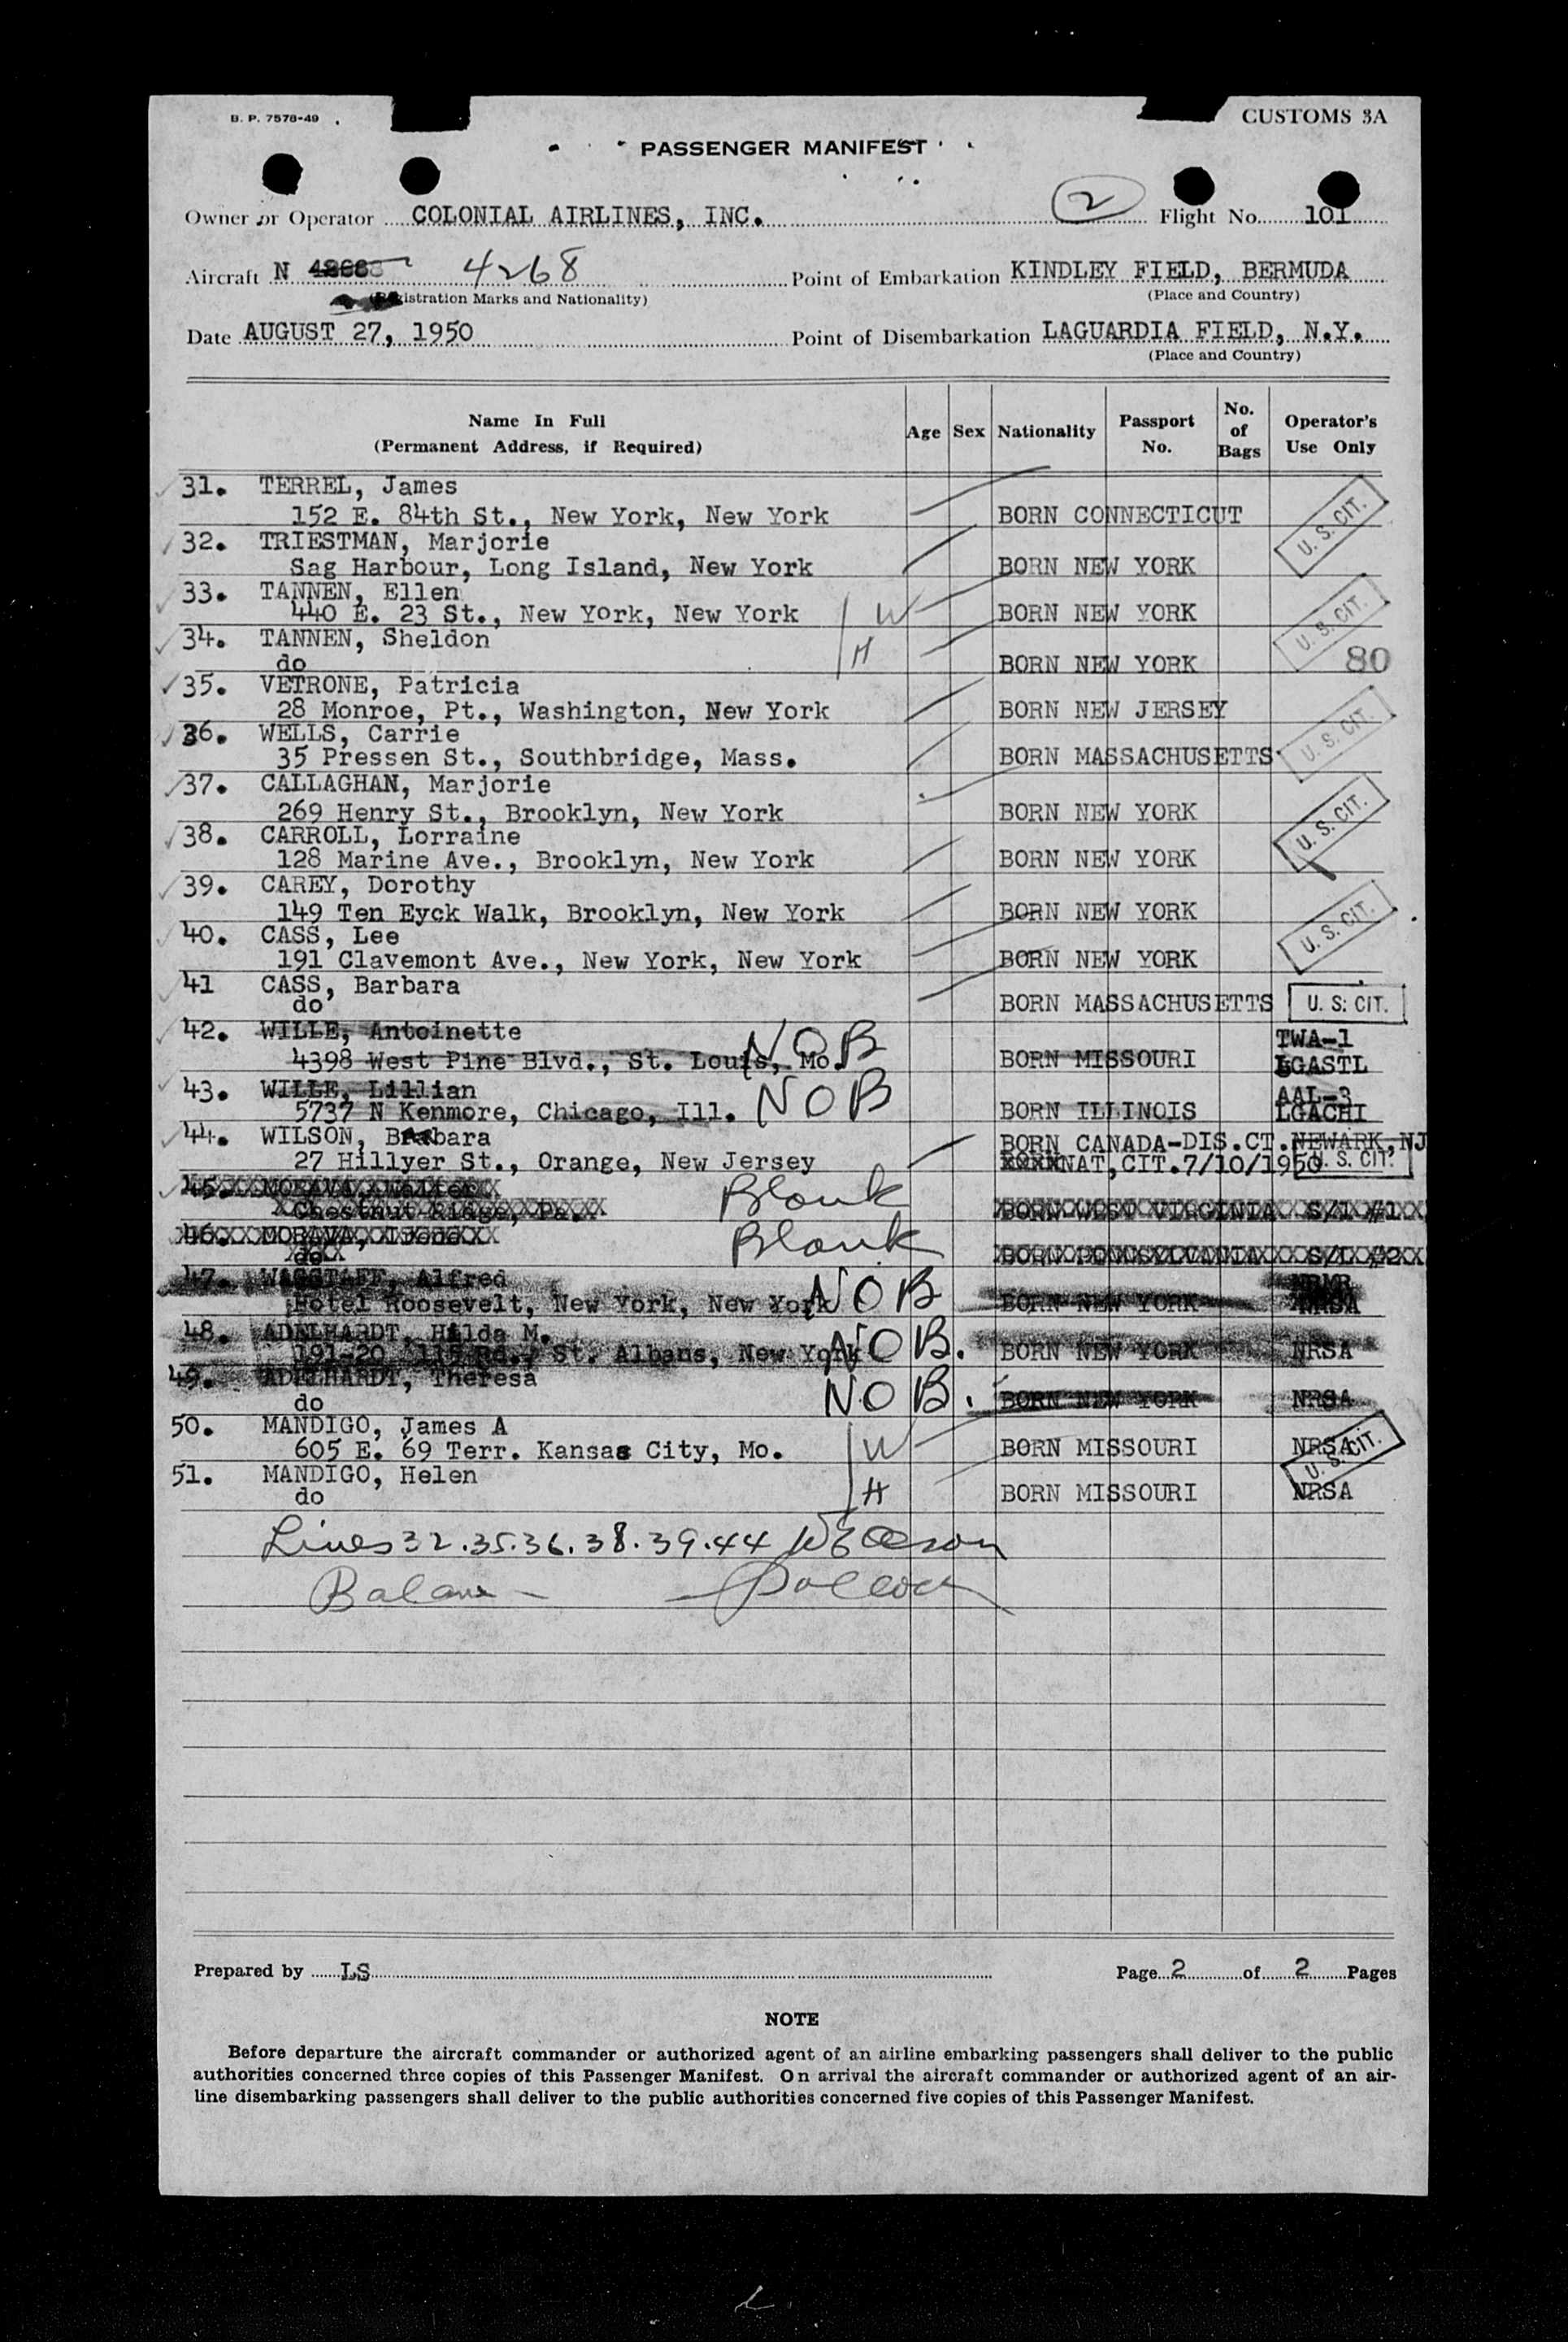 B. P. 7578-49
CUSTOMS 3A
PASSENGER MANIFEST
Owner or Operator COLONIAL AIRLINES, INC. 2 Flight No. 101
Aircraft N 4268 Point of Embarkation KINDLEY FIELD, BERMUDA
(Registration Marks and Nationality) (Place and Country)
Date AUGUST 27, 1950 Point of Disembarkation LAGUARDIA FIELD, N.Y.
(Place and Country)
Name In Full (Permanent Address, if Required) Age Sex Nationality Passport No. No. of Bags Operator's Use Only
31. TERREL, James
152 E. 84th St., New York, New York BORN CONNECTICUT U. S. CIT.
32. TRIESTMAN, Marjorie
Sag Harbour, Long Island, New York BORN NEW YORK
33. TANNEN, Ellen
440 E. 23 St., New York, New York W BORN NEW YORK U. S. CIT.
34. TANNEN, Sheldon
do H BORN NEW YORK 80
35. VETRONE, Patricia
28 Monroe, Pt., Washington, New York BORN NEW JERSEY
36. WELLS, Carrie
35 Pressen St., Southbridge, Mass. BORN MASSACHUSETTS U. S. CIT.
37. CALLAGHAN, Marjorie
269 Henry St., Brooklyn, New York BORN NEW YORK
38. CARROLL, Lorraine U. S. CIT.
128 Marine Ave., Brooklyn, New York BORN NEW YORK
39. CAREY, Dorothy
149 Ten Eyck Walk, Brooklyn, New York BORN NEW YORK
40. CASS, Lee U. S. CIT.
191 Clavemont Ave., New York, New York BORN NEW YORK
41 CASS, Barbara
do BORN MASSACHUSETTS U. S. CIT.
42. WILLE, Antoinette NOB TWA-1
4398 West Pine Blvd., St. Louis, Mo. BORN MISSOURI LGASTL
43. WILLE, Lillian NOB AAL-3
5737 N Kenmore, Chicago, Ill. BORN ILLINOIS LGACHI
44. WILSON, Barbara BORN CANADA-DIS.CT.NEWARK,NJ
27 Hillyer St., Orange, New Jersey NAT,CIT.7/10/1950 U. S. CIT.
45. MORAVA, Walter Blank
Chestnut Ridge, Pa. BORN WEST VIRGINIA S/I #1
46. MORAVA, Irene Blank
do BORN PENNSYLVANIA S/I #2
47. WAGSTAFF, Alfred NOB
Hotel Roosevelt, New York, New York BORN NEW YORK
48. ADELHARDT, Hilda M. NOB.
191-20 115 Rd., St. Albans, New York BORN NEW YORK NRSA
49. ADELHARDT, Theresa NOB.
do BORN NEW YORK NRSA
50. MANDIGO, James A
605 E. 69 Terr. Kansas City, Mo. W BORN MISSOURI NRSA U. S. CIT.
51. MANDIGO, Helen
do H BORN MISSOURI NRSA
Lines 32.35.36.38.39.44
Balance
Prepared by LS Page 2 of 2 Pages
NOTE
Before departure the aircraft commander or authorized agent of an airline embarking passengers shall deliver to the public
authorities concerned three copies of this Passenger Manifest. On arrival the aircraft commander or authorized agent of an air-
line disembarking passengers shall deliver to the public authorities concerned five copies of this Passenger Manifest.